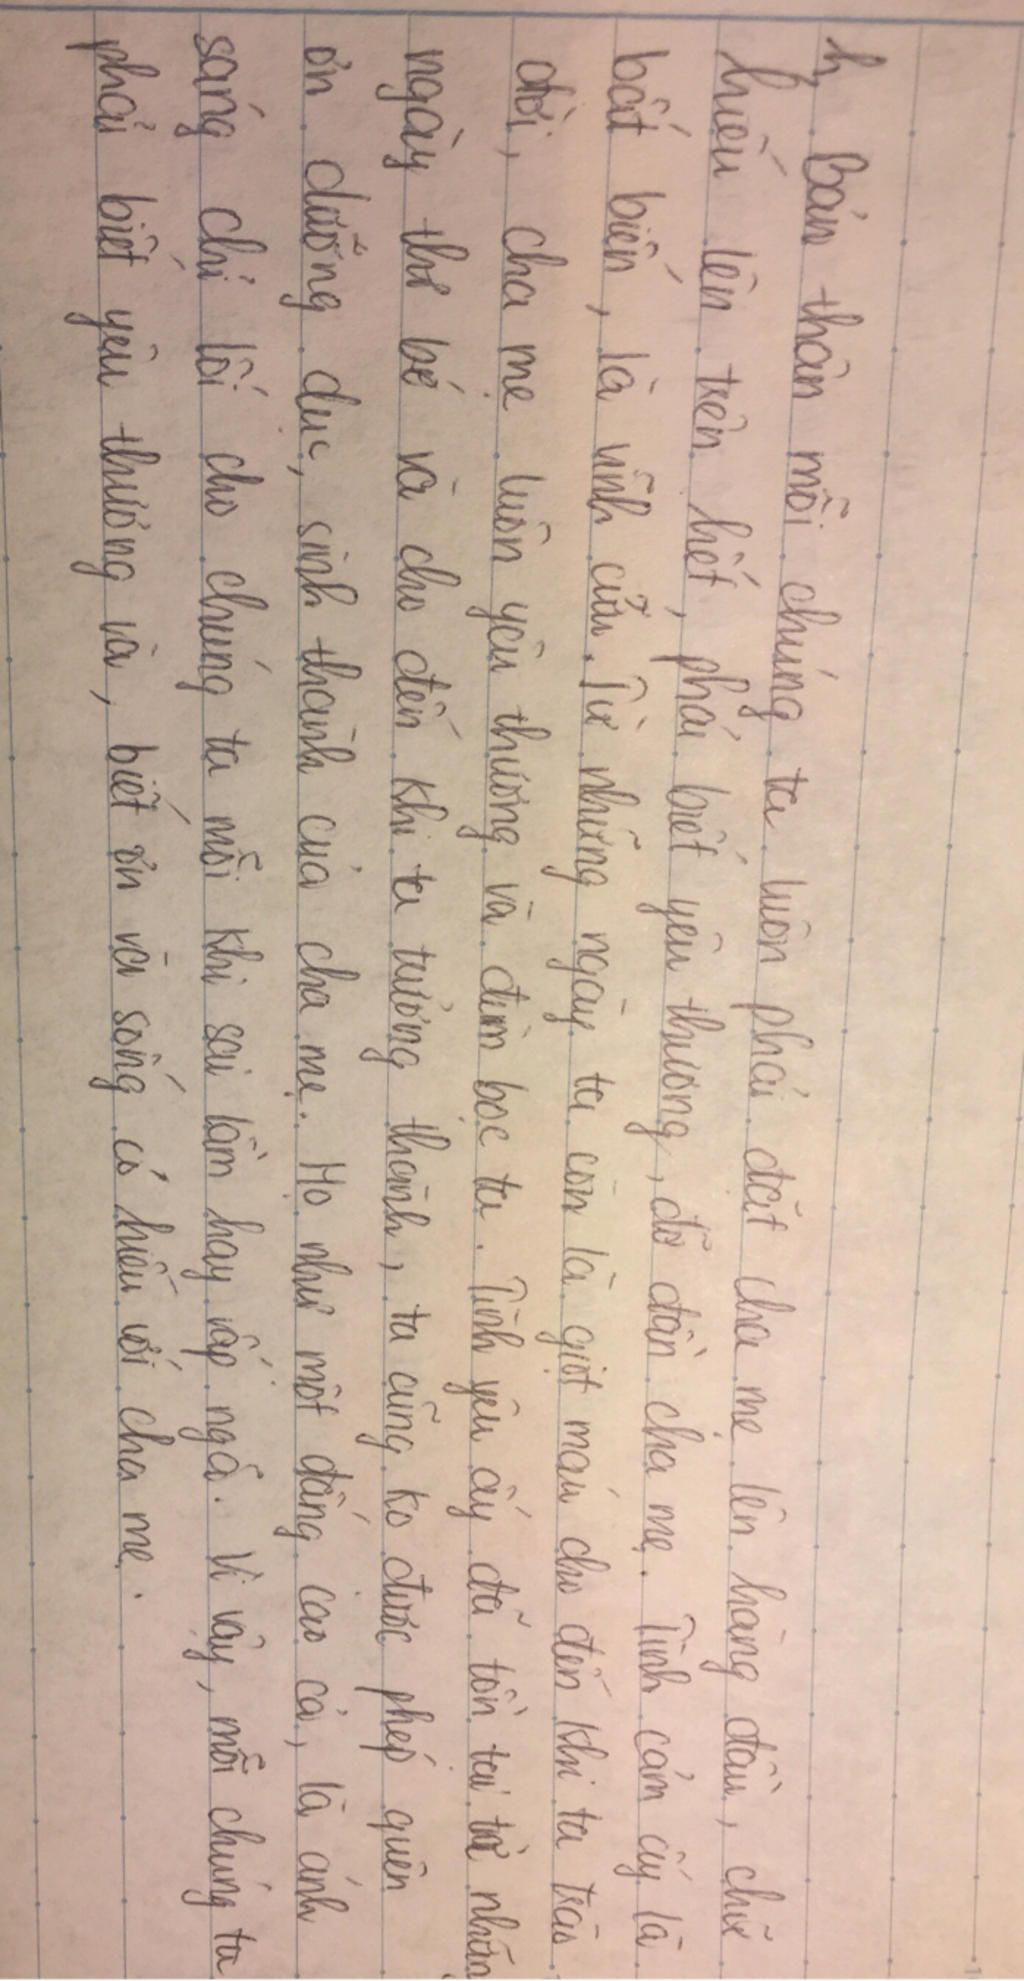 h, Bản thân mỗi chúng ta luôn phải đặt cha mẹ lên hàng đầu, chữ
hiếu lên trên hết, phải biết yêu thương, đỡ đần cha mẹ. Tình cảm ấy là
bất biến, là vĩnh cửu. Từ những ngày ta còn là giọt máu cho đến khi ta trào
đời, cha mẹ luôn yêu thương và đùm bọc ta. Tình yêu ấy đã tồn tại từ những
ngày thơ bé và cho đến khi ta trưởng thành, ta cũng ko được phép quên
ơn dưỡng dục, sinh thành của cha mẹ. Họ như một đấng cao cả, là ánh
sáng chỉ lối cho chúng ta mỗi khi sai lầm hay vấp ngã. Vì vậy, mỗi chúng ta
phải biết yêu thương và, biết ơn và sống có hiếu với cha mẹ.